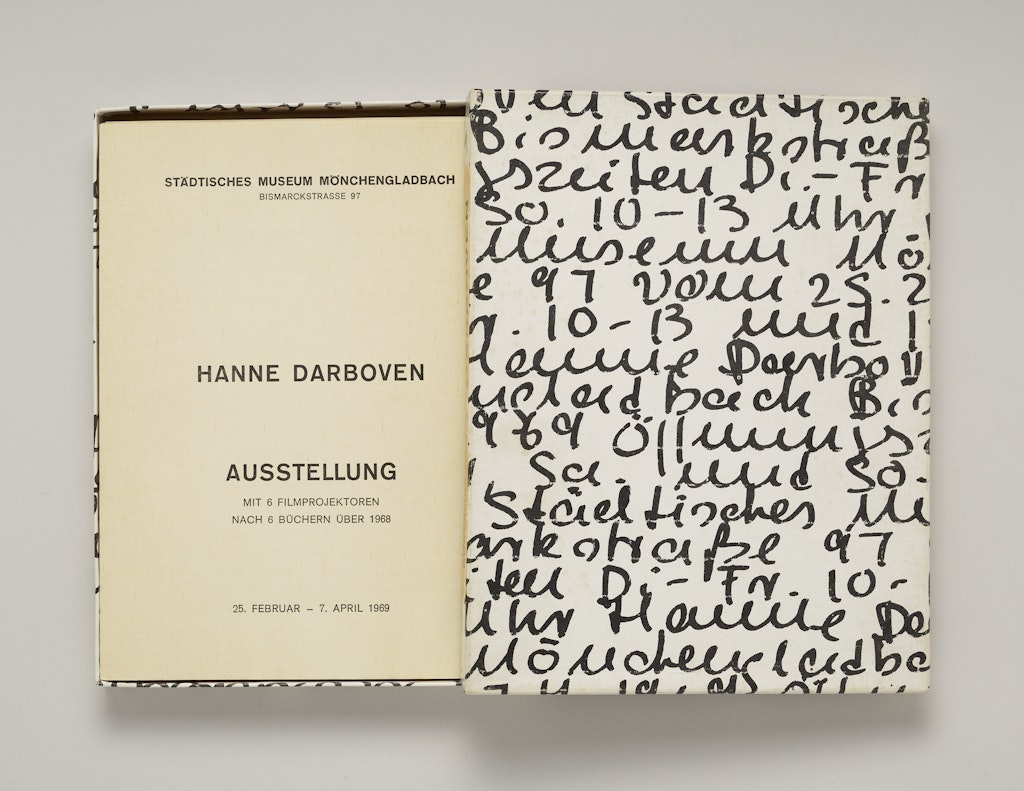 STÄDTISCHES MUSEUM MÖNCHENGLADBACH
BISMARCKSTRASSE 97
HANNE DARBOVEN
AUSSTELLUNG
MIT 6 FILMPROJEKTOREN
NACH 6 BÜCHERN ÜBER 1968
25. FEBRUAR – 7. APRIL 1969
ven Städtische
Bismarkstraß
gszeiten Di.- Fr
So. 10-13 Uhr
Museum Mö
e 97 vom 25. 2
r. 10-13 und 1
Hanne Darbov
ncheladbach Bis
969 Öffnungsz
Sa. und So.
Städtisches Mu
arkstraße 97
iten Di- Fr. 10-
Uhr Hanne Da
Mönchengladba